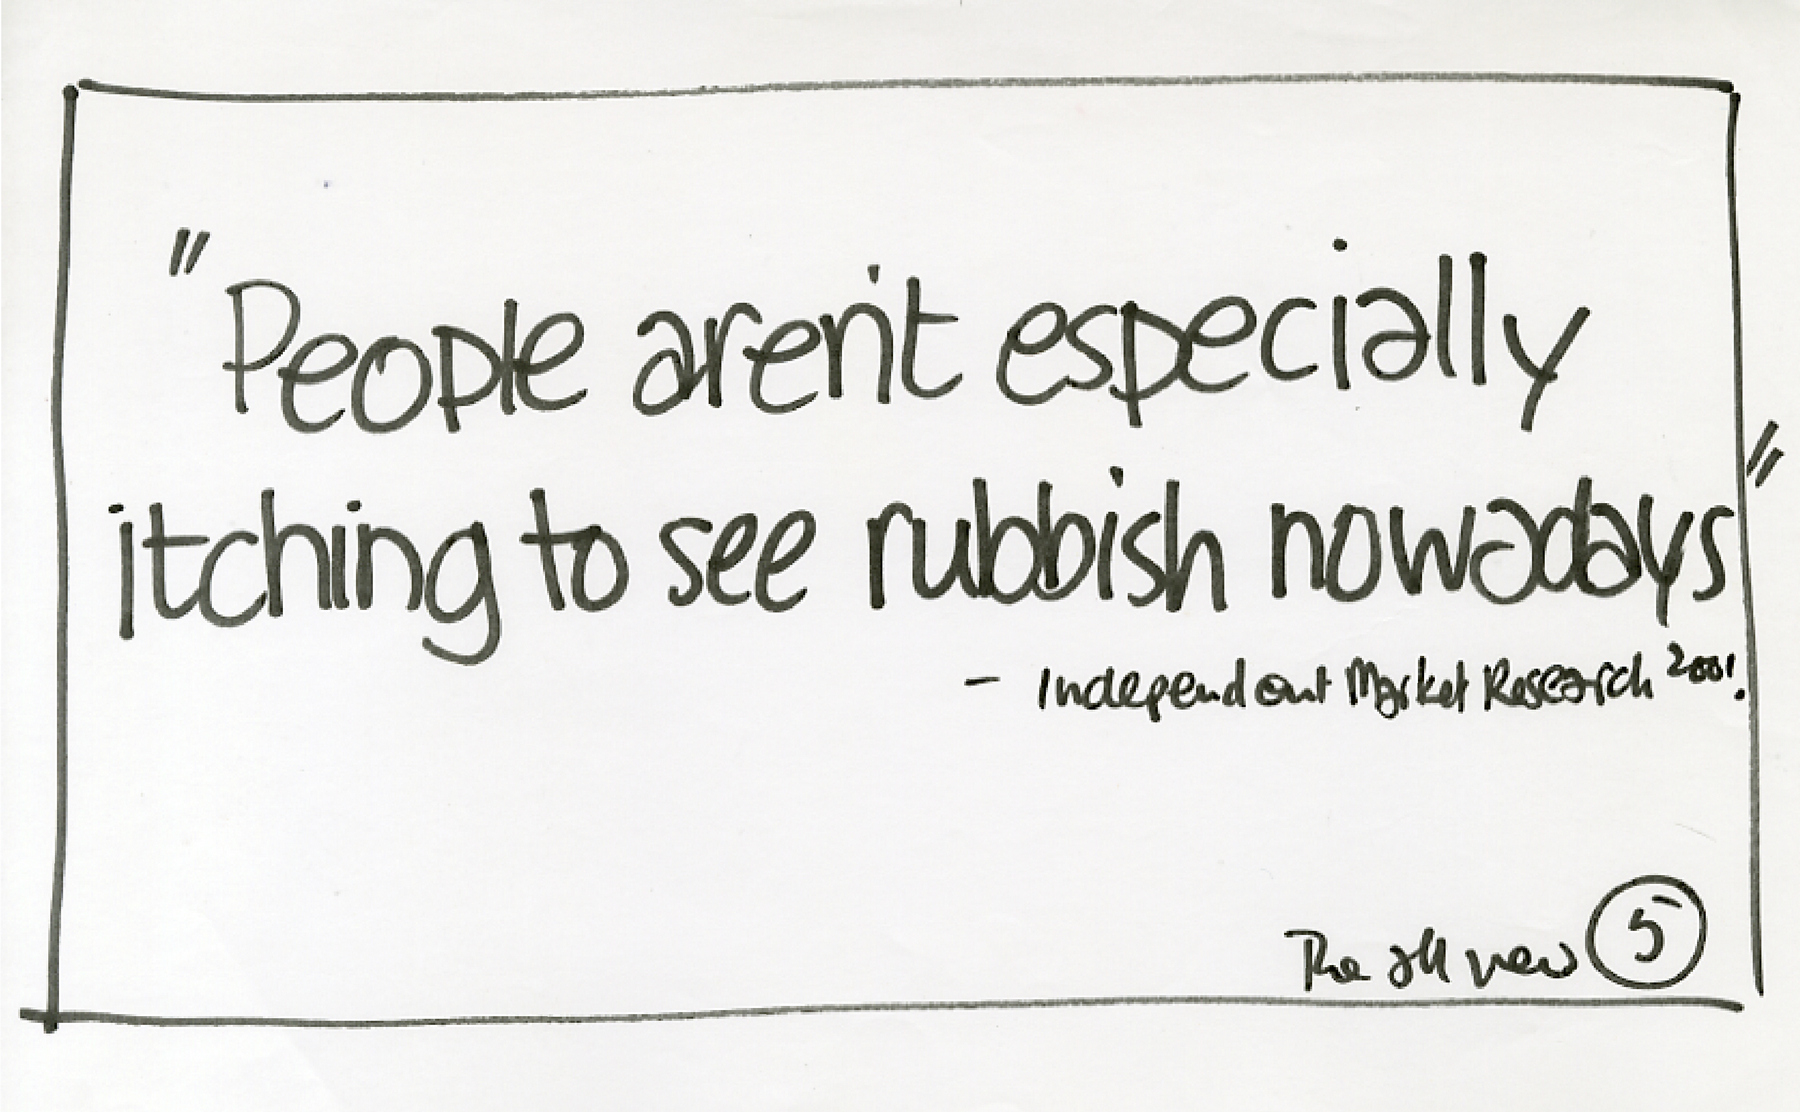 "People aren't especially
itching to see rubbish nowadays"
- Independant Market Research 2001.
The all new 5